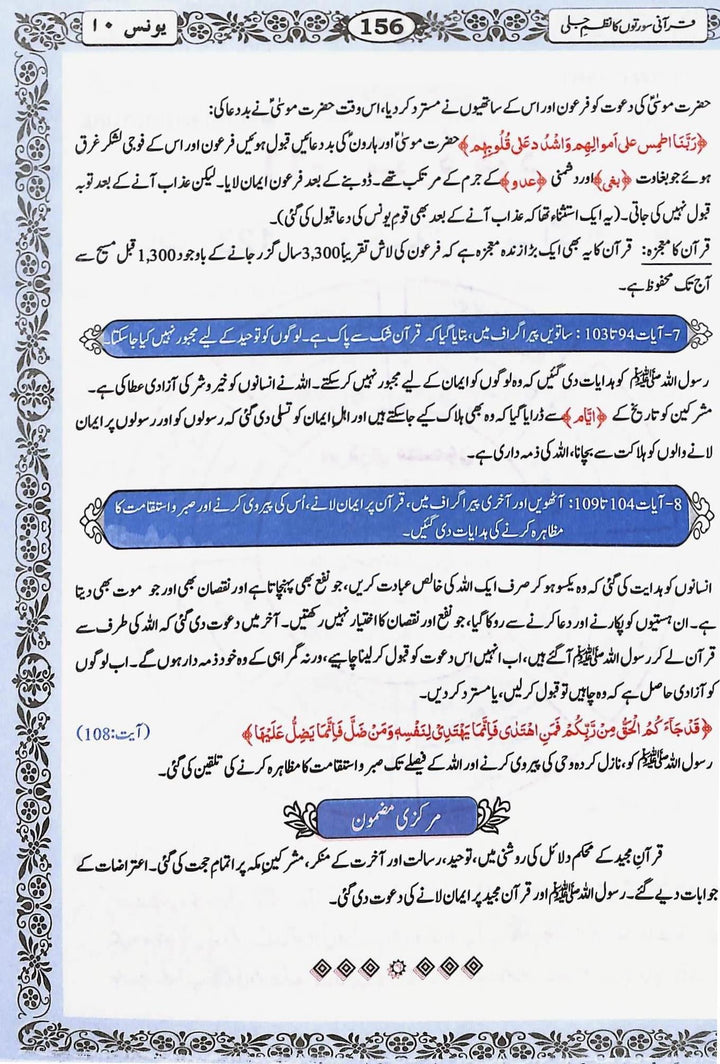 قرآنی سورتوں کا نظمِ جلی
156
یونس ۱۰
حضرت موسٰیؑ کی دعوت کو فرعون اور اس کے ساتھیوں نے مسترد کر دیا، اس وقت حضرت موسٰیؑ نے بددعا کی:
﴿رَبَّنَا اطْمِس عَلٰی اَموالِهِم وَاشْدُد عَلٰی قُلُوبِهِم﴾ حضرت موسٰیؑ اور ہارونؑ کی بددعائیں قبول ہوئیں فرعون اور اس کے فوجی لشکر غرق
ہوئے جو بغاوت ﴿بغی﴾ اور دشمنی ﴿عدو﴾ کے جرم کے مرتکب تھے۔ ڈوبنے کے بعد فرعون ایمان لایا۔ لیکن عذاب آنے کے بعد توبہ
قبول نہیں کی جاتی۔ (یہ ایک استثناء تھا کہ عذاب آنے کے بعد بھی قومِ یونس کی دعا قبول کی گئی)۔
قرآن کا معجزہ: قرآن کا یہ بھی ایک بڑا زندہ معجزہ ہے کہ فرعون کی لاش تقریباً 3,300 سال گزر جانے کے باوجود 1,300 قبل مسیح سے
آج تک محفوظ ہے۔
7- آیات 94 تا 103 : ساتویں پیراگراف میں، بتایا گیا کہ قرآن شک سے پاک ہے۔ لوگوں کو توحید کے لیے مجبور نہیں کیا جا سکتا۔
رسول اللہ ﷺ کو ہدایات دی گئیں کہ وہ لوگوں کو ایمان کے لیے مجبور نہیں کر سکتے۔ اللہ نے انسانوں کو خیر و شر کی آزادی عطا کی ہے۔
مشرکین کو تاریخ کے ﴿ایّام﴾ سے ڈرایا گیا کہ وہ بھی ہلاک کیے جا سکتے ہیں اور اہلِ ایمان کو تسلی دی گئی کہ رسولوں کو اور رسولوں پر ایمان
لانے والوں کو ہلاکت سے بچانا، اللہ کی ذمہ داری ہے۔
8- آیات 104 تا 109: آٹھویں اور آخری پیراگراف میں، قرآن پر ایمان لانے، اُس کی پیروی کرنے اور صبر و استقامت کا
مظاہرہ کرنے کی ہدایات دی گئیں۔
انسانوں کو ہدایت کی گئی کہ وہ یکسو ہو کر صرف ایک اللہ کی خالص عبادت کریں، جو نفع بھی پہنچاتا ہے اور نقصان بھی اور جو موت بھی دیتا
ہے۔ ان ہستیوں کو پکارنے اور دعا کرنے سے روکا گیا، جو نفع اور نقصان کا اختیار نہیں رکھتیں۔ آخر میں دعوت دی گئی کہ اللہ کی طرف سے
قرآن لے کر رسول اللہ ﷺ آ گئے ہیں، اب انہیں اس دعوت کو قبول کر لینا چاہیے، ورنہ گمراہی کے وہ خود ذمہ دار ہوں گے۔ اب لوگوں
کو آزادی حاصل ہے کہ وہ چاہیں تو قبول کر لیں، یا مسترد کر دیں۔
﴿قَدْ جَآءَكُمُ الْحَقُّ مِنْ رَّبِّكُمْ فَمَنِ اهْتَدٰى فَاِنَّمَا يَهْتَدِىْ لِنَفْسِهٖ وَمَنْ ضَلَّ فَاِنَّمَا يَضِلُّ عَلَيْهَا﴾ (آیت: 108)
رسول اللہ ﷺ کو، نازل کردہ وحی کی پیروی کرنے اور اللہ کے فیصلے تک صبر و استقامت کا مظاہرہ کرنے کی تلقین کی گئی۔
مرکزی مضمون
قرآنِ مجید کے محکم دلائل کی روشنی میں، توحید، رسالت اور آخرت کے منکر، مشرکینِ مکہ پر اتمامِ حجت کی گئی۔ اعتراضات کے
جوابات دیے گئے۔ رسول اللہ ﷺ اور قرآن مجید پر ایمان لانے کی دعوت دی گئی۔